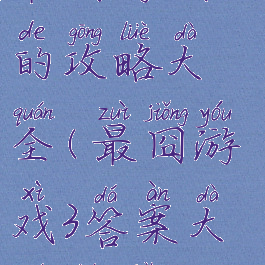 de gōng lüè dà
的攻略大
quán zuì jiǒng yóu
全(最囧游
xì dá àn dà
戏3答案大